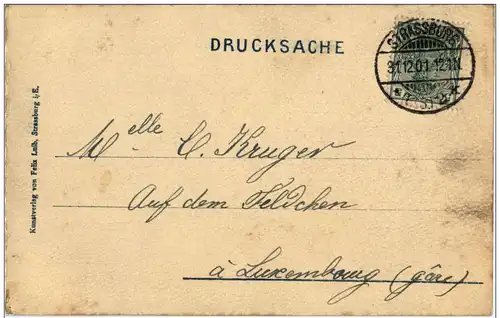 DRUCKSACHE
STRASSBURG
31.12.01. 12-1N
Melle C. Kruger
Auf dem Feldchen
à Luxembourg (gare)
Kunstverlag von Felix Luib, Strassburg i/E.